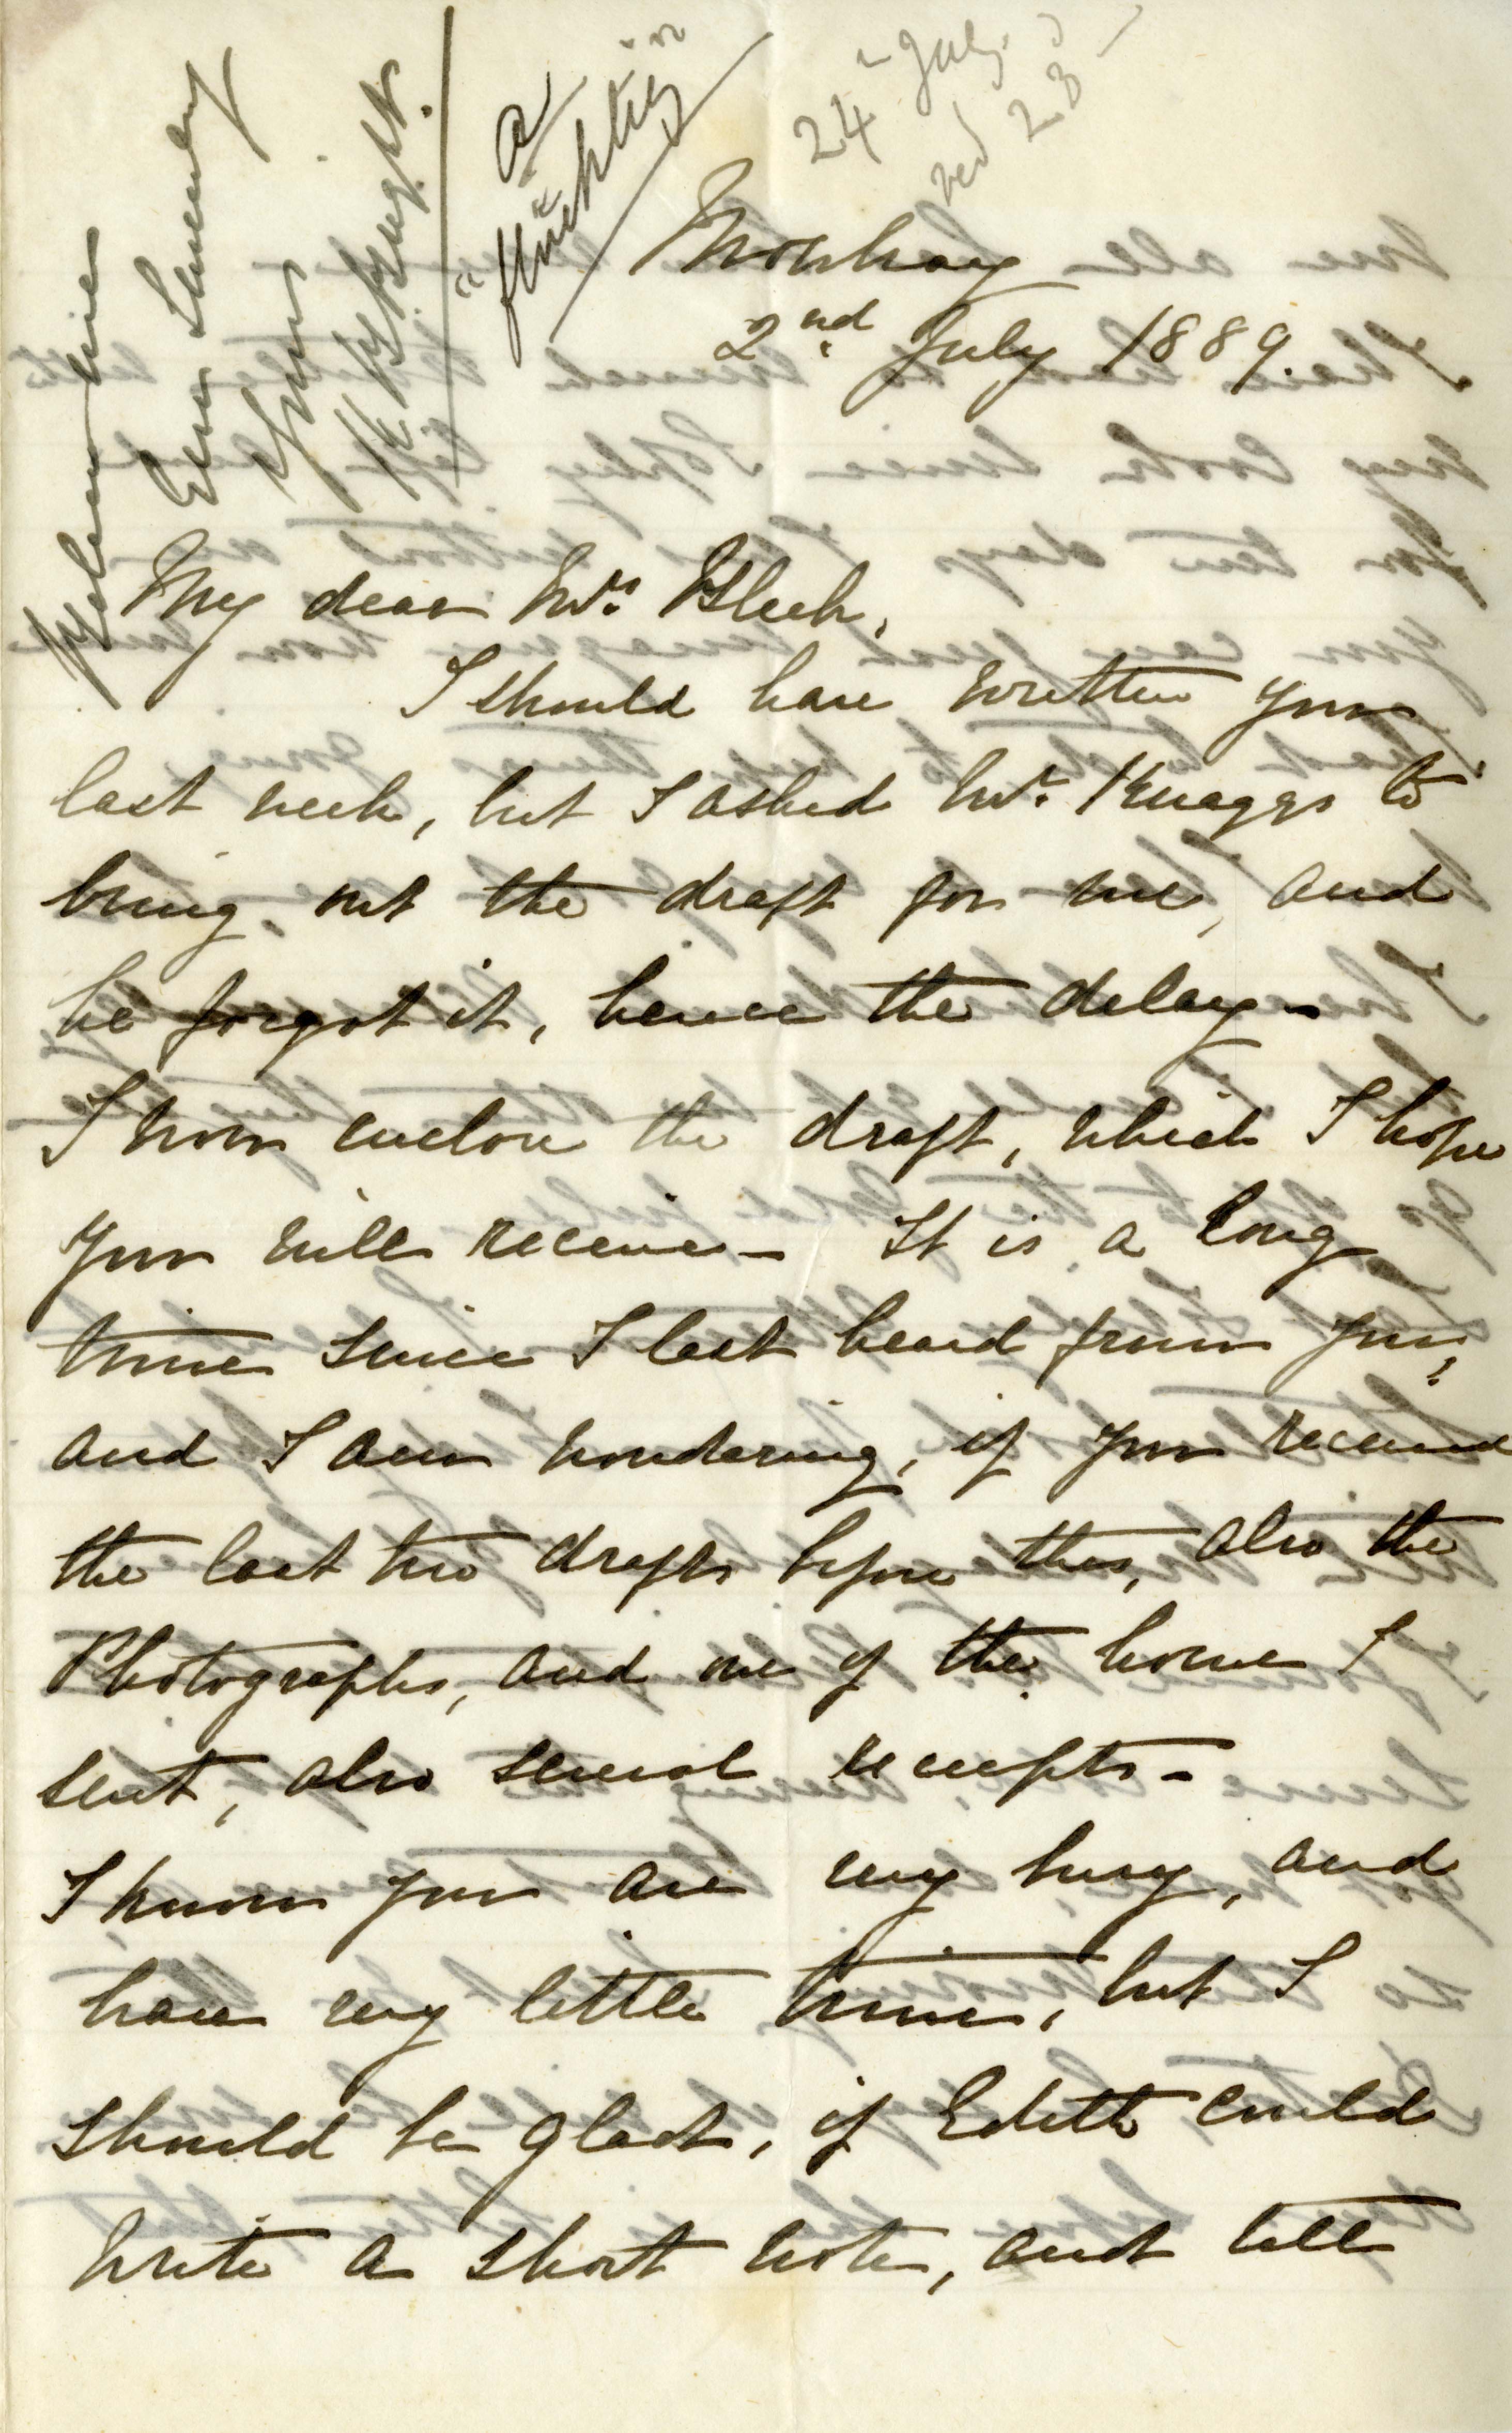 24 July
red 23
a
"flüchtig"
Mowbray
2nd July 1889.
My dear Mrs. Bleek,
I should have written you
last week, but I asked Mr. Knaggs to
bring out the draft for me, and
he forgot it, hence the delay -
I now enclose the draft, which I hope
you will receive - It is a long
time since I last heard from you,
and I am wondering, if you received
the last two drafts before this, also the
Photographs, and one of the house I
sent, also several receipts -
I know you are very busy, and
have very little time, but I
should be glad, if Edith could
write a short note, and tell
Believe me
Ever Sincerely
Yours